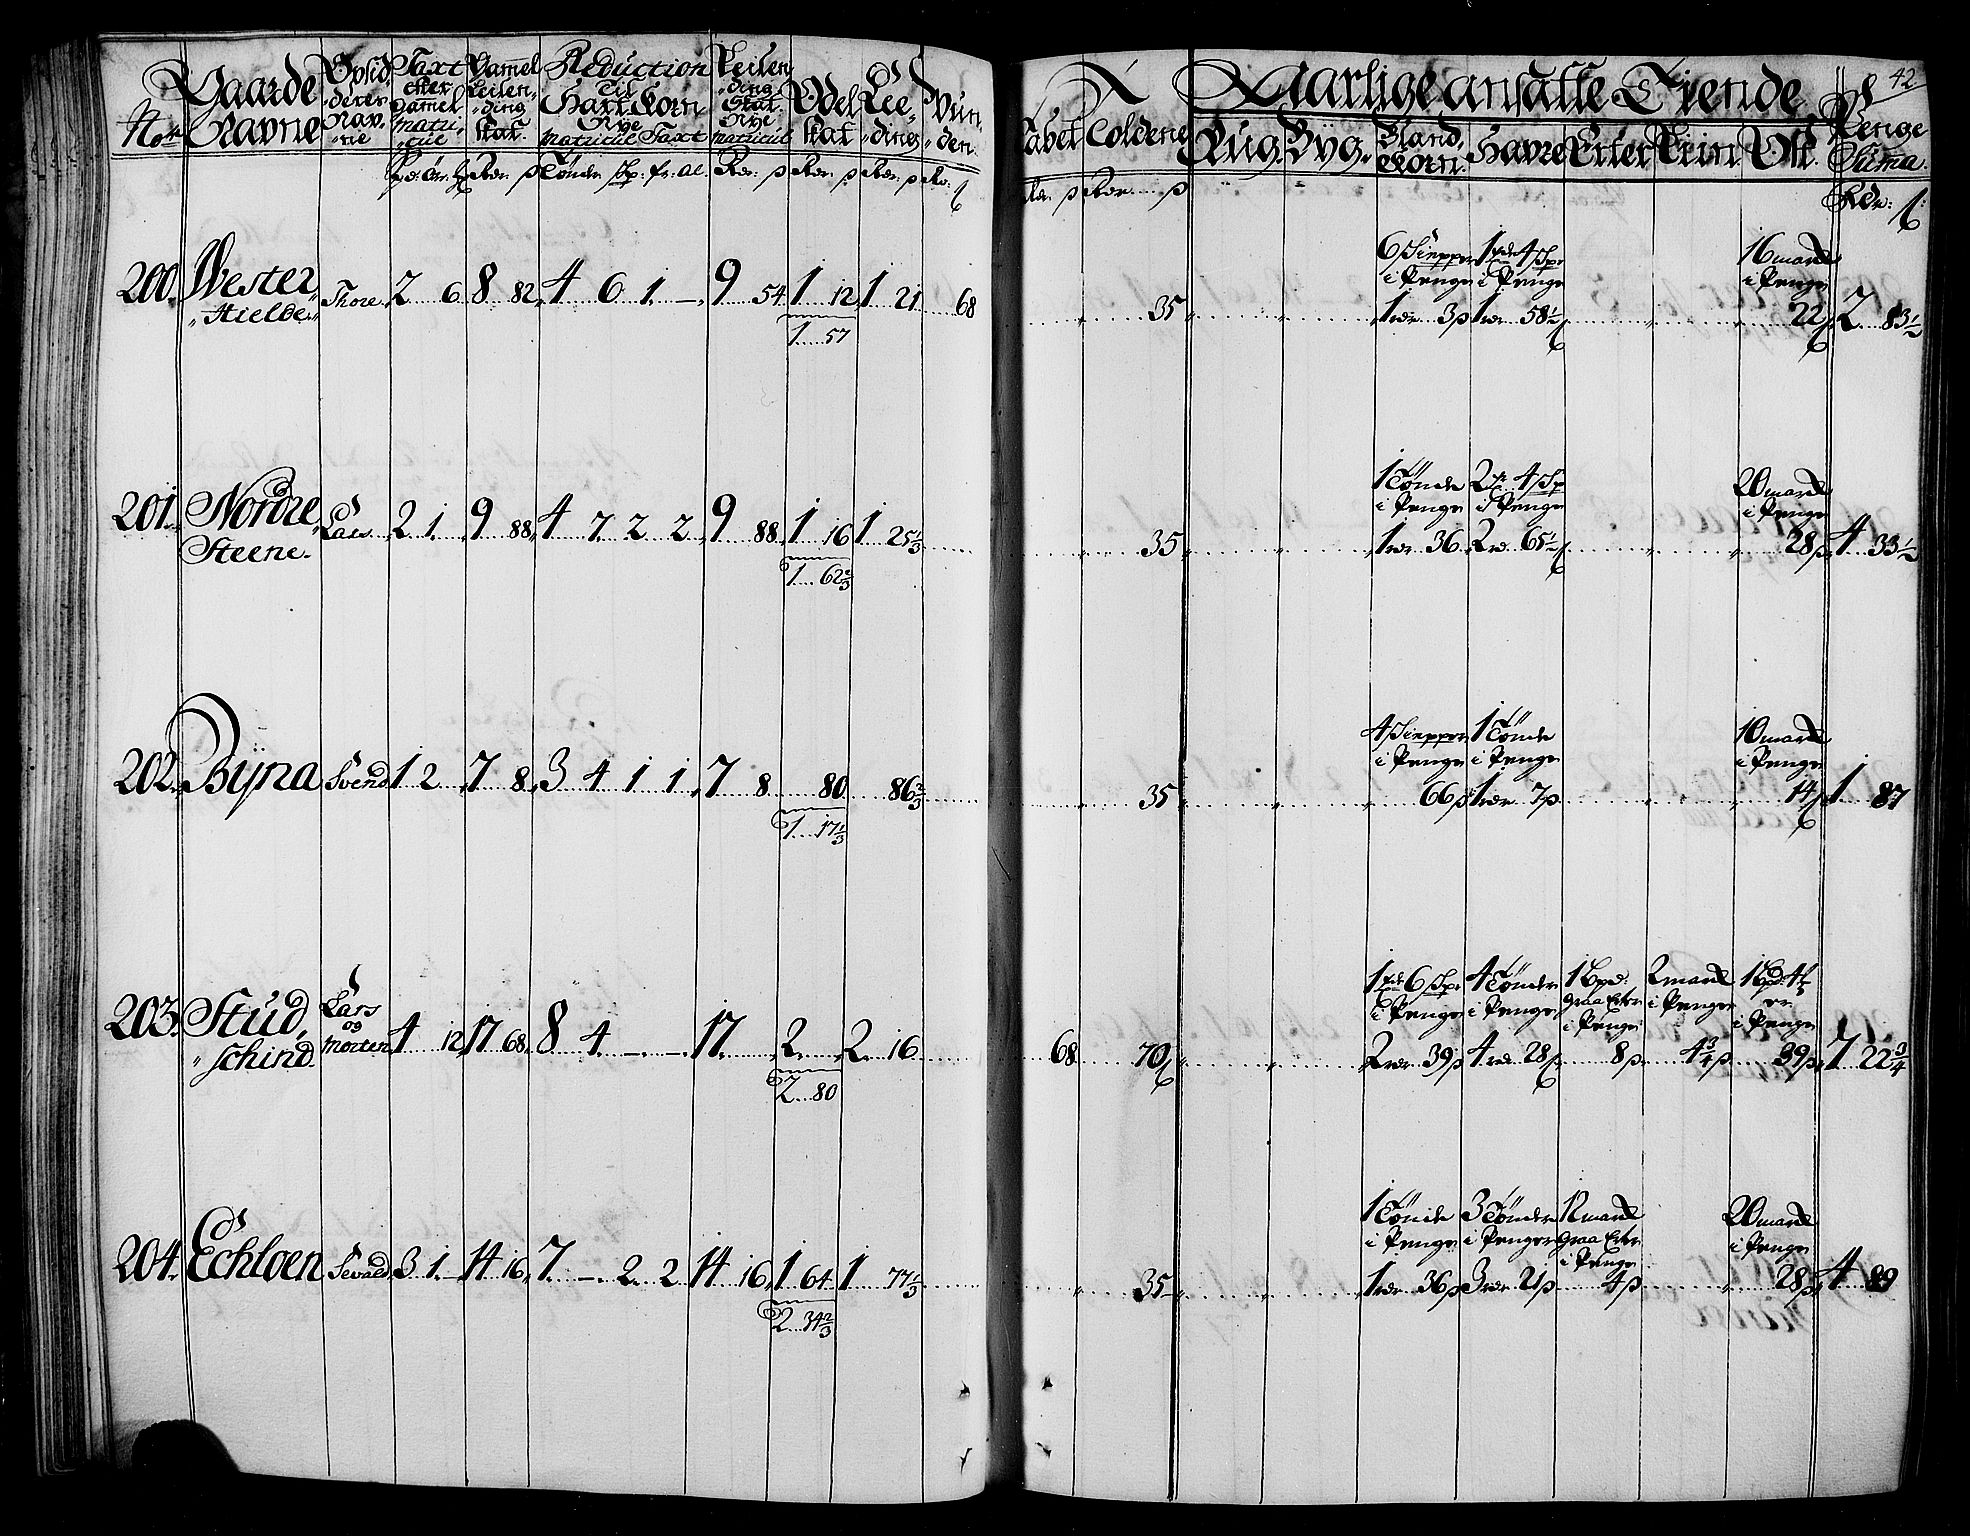 42
No: Gaarde Navne Opsid derer Nav ne Taxt efter Gamel Matri cul Gamel Leilen ding skat. Reduction til Hart Korn Nye Matricul Taxt Leilen ding Skat Nye Matricul Odel skat Lee ding Vun den
Tabet Foldene Aarlige ansatte Tiende Penge Suma
Rug. Byg. Bland Korn. Havre Erter Liin Ost.
200. Wester Hielde Thore 2 6 8 82 4 6 1 — 9 54 1 12 1 21 68
1 57
6 Siepper 1 tde 4 Spr 16 mark
i Penge i Penge i Penge
35 1 rdr 3 1 rdr 58½ 22 2 83½
201. Nordre Steene. Lars 2 1 9 88 4 7 2 2 9 88 1 16 1 25⅓
1 62⅔
1 Tønde 2 4 Sp 20 mark
i Penge i Penge i Penge
35 1 rdr 36 2 rd. 65½ 28 4 33½
202. Byna Svend 1 2 7 8 3 4 1 1 7 8 80 86⅔
1 17⅓
4 Siepper 1 Tønde 10 mark
i Penge i Penge i Penge
35 66 1 rdr 7 14 1 87
203. Stud schind Lars og Morten 4 12 17 68 8 4 — — 17 2 2 16
2 80
1 tde 6 Spr 4 Tønder 1 Bpd: 2 mark 1 Bpd: 4
i Penge i Penge graa Erter i Penge i Penge
i Penge
68 70 2 rdr 39 4 rdr 28 8 4¾ 39 7 22¾
204. Echloen Sevald 3 1 — 14 16 7 — 2 2 14 16 1 64 1 77⅓
2 34⅔
1 Tønde 3 Tønder 12 mark 20 mark
i Penge i Penge Graa Erter i Penge
i Penge
35 1 rdr 36 3 rdr 21 4 28 4 89